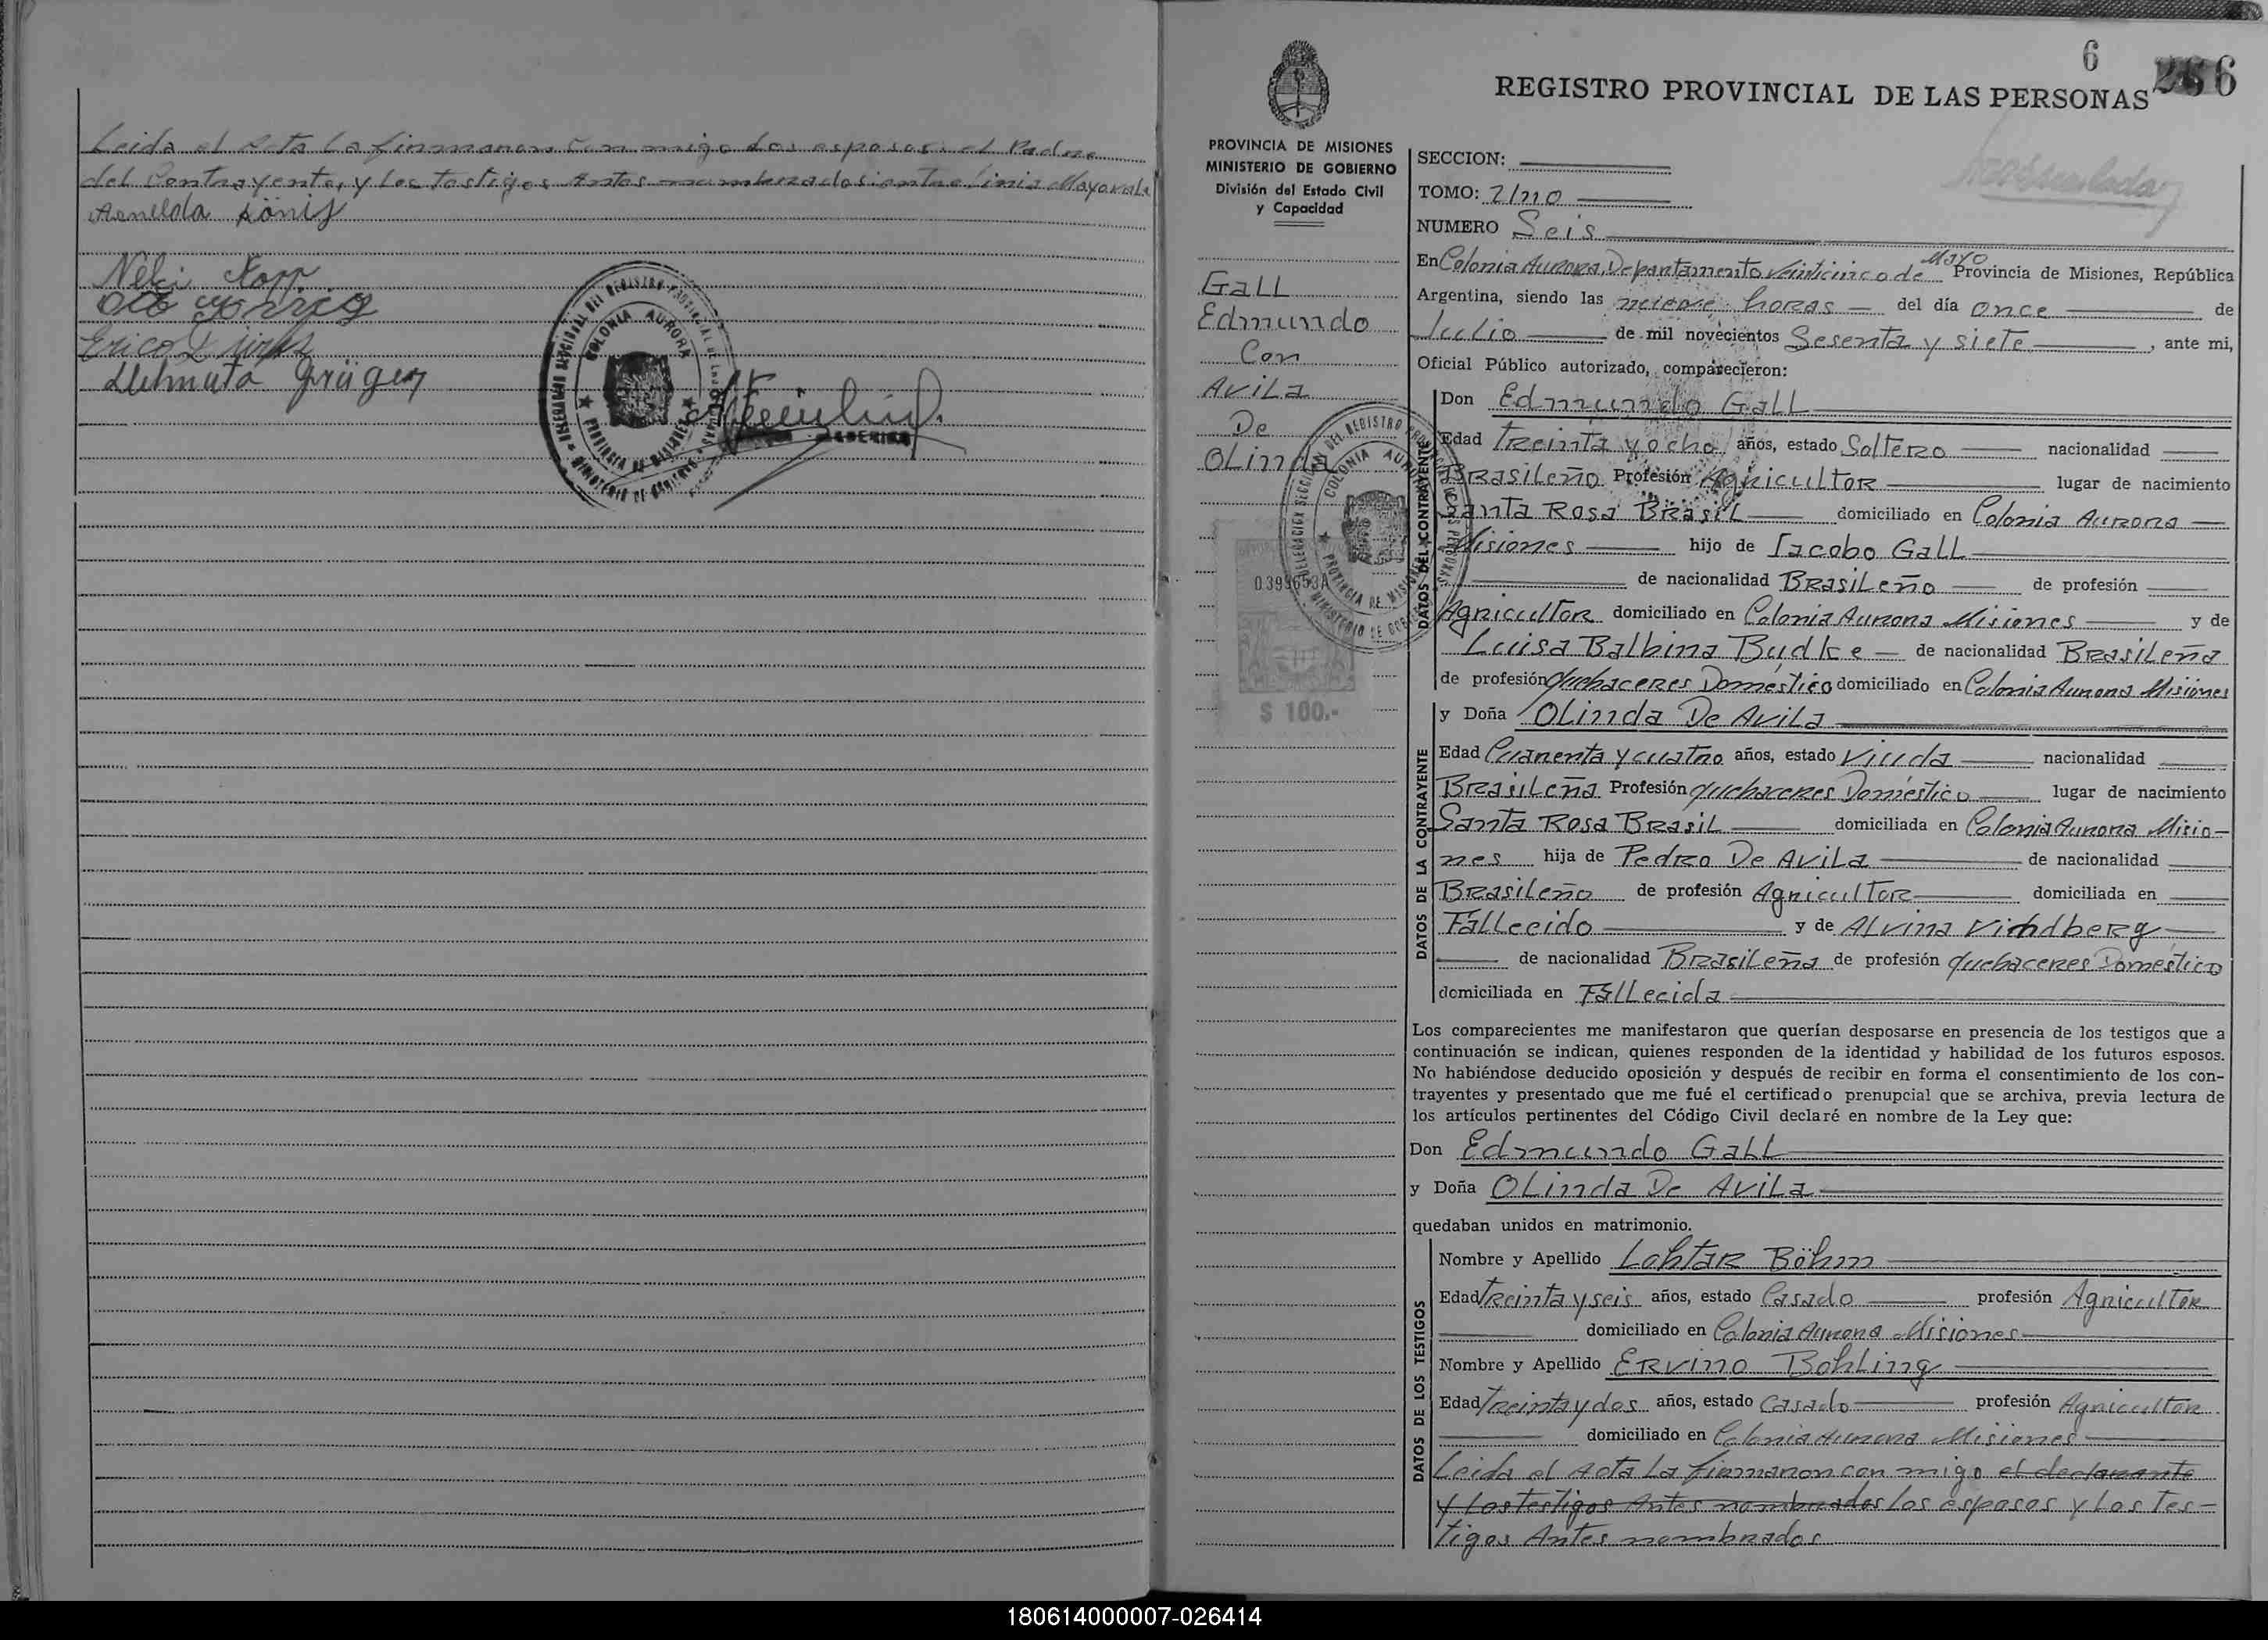 Leida el Acta La firmmanon Con migo Los esposos: el Padre
del Contrayente, y Los testigos Antes nombrados: entre linia Mayo vale
Asnelda König
Neli Kopp
Otto
Erico Dirks
Helmuto Grüger
DELEGACION SECCIONAL DEL REGISTRO PROVINCIAL DE LAS PERSONAS
COLONIA AURORA
PROVINCIA DE MISIONES
MINISTERIO DE GOBIERNO
6
266
REGISTRO PROVINCIAL DE LAS PERSONAS
PROVINCIA DE MISIONES
MINISTERIO DE GOBIERNO
División del Estado Civil
y Capacidad
Gall
Edmundo
Con
Avila
De
Olinda
DELEGACION SECCIONAL DEL REGISTRO PROVINCIAL DE LAS PERSONAS
COLONIA AURORA
PROVINCIA DE MISIONES
MINISTERIO DE GOBIERNO
0399653A
$ 100.-
SECCION:
TOMO: Uno
NUMERO Seis
En Colonia Aurora Departamento Veinticinco de Mayo Provincia de Misiones, República
Argentina, siendo las nueve horas del día once de
Julio de mil novecientos Sesenta y siete, ante mi,
Oficial Público autorizado, comparecieron:
DATOS DEL CONTRAYENTE
Don Edmundo Gall
Edad Treinta y ocho años, estado Soltero nacionalidad
Brasileño Profesión Agricultor lugar de nacimiento
Santa Rosa Brasil domiciliado en Colonia Aurora
Misiones hijo de Jacobo Gall
de nacionalidad Brasileño de profesión
Agricultor domiciliado en Colonia Aurora Misiones y de
Luisa Balbina Budke de nacionalidad Brasileña
de profesión quehaceres Domestico domiciliado en Colonia Aurora Misiones
DATOS DE LA CONTRAYENTE
y Doña Olinda De Avila
Edad Cuarenta y cuatro años, estado Viuda nacionalidad
Brasileña Profesión quehaceres Doméstico lugar de nacimiento
Santa Rosa Brasil domiciliada en Colonia Aurora Misio-
nes hija de Pedro De Avila de nacionalidad
Brasileño de profesión Agricultor domiciliada en
Fallecido y de Alvina Vichdberg
de nacionalidad Brasileña de profesión quehaceres Doméstico
domiciliada en Fallecida
Los comparecientes me manifestaron que querían desposarse en presencia de los testigos que a
continuación se indican, quienes responden de la identidad y habilidad de los futuros esposos.
No habiéndose deducido oposición y después de recibir en forma el consentimiento de los con-
trayentes y presentado que me fué el certificado prenupcial que se archiva, previa lectura de
los artículos pertinentes del Código Civil declaré en nombre de la Ley que:
Don Edmundo Gall
y Doña Olinda De Avila
quedaban unidos en matrimonio.
DATOS DE LOS TESTIGOS
Nombre y Apellido Lohtar Böhm
Edad Treinta y seis años, estado Casado profesión Agricultor
domiciliado en Colonia Aurora Misiones
Nombre y Apellido Ervino Bohling
Edad Treinta y dos años, estado Casado profesión Agricultor
domiciliado en Colonia Aurora Misiones
Leida el Acta La firmaron con migo el declarante
y Los testigos Antes nombrados Los esposos y Los Tes-
tigos Antes nombrados
180614000007-026414